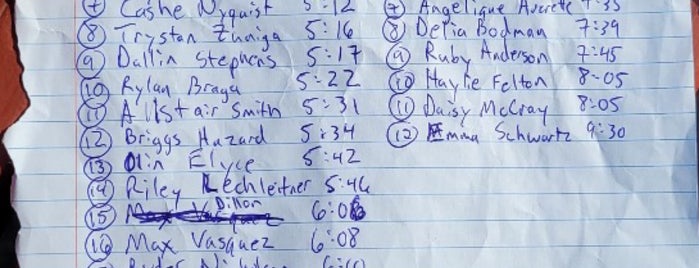 (7) Cashe Nyquist 5:12
(8) Trystan Zuniga 5:16
(9) Dallin Stephens 5:17
(10) Rylan Braga 5:22
(11) Alistair Smith 5:31
(12) Briggs Hazard 5:34
(13) Olin Elyce 5:42
(14) Riley Lechleitner 5:46
(15) Dillon 6:06
(16) Max Vasquez 6:08
(7) Angelique Averett 7:35
(8) Delia Bodman 7:39
(9) Ruby Anderson 7:45
(10) Haylie Felton 8:05
(11) Daisy McCray 8:05
(12) Emma Schwartz 9:30